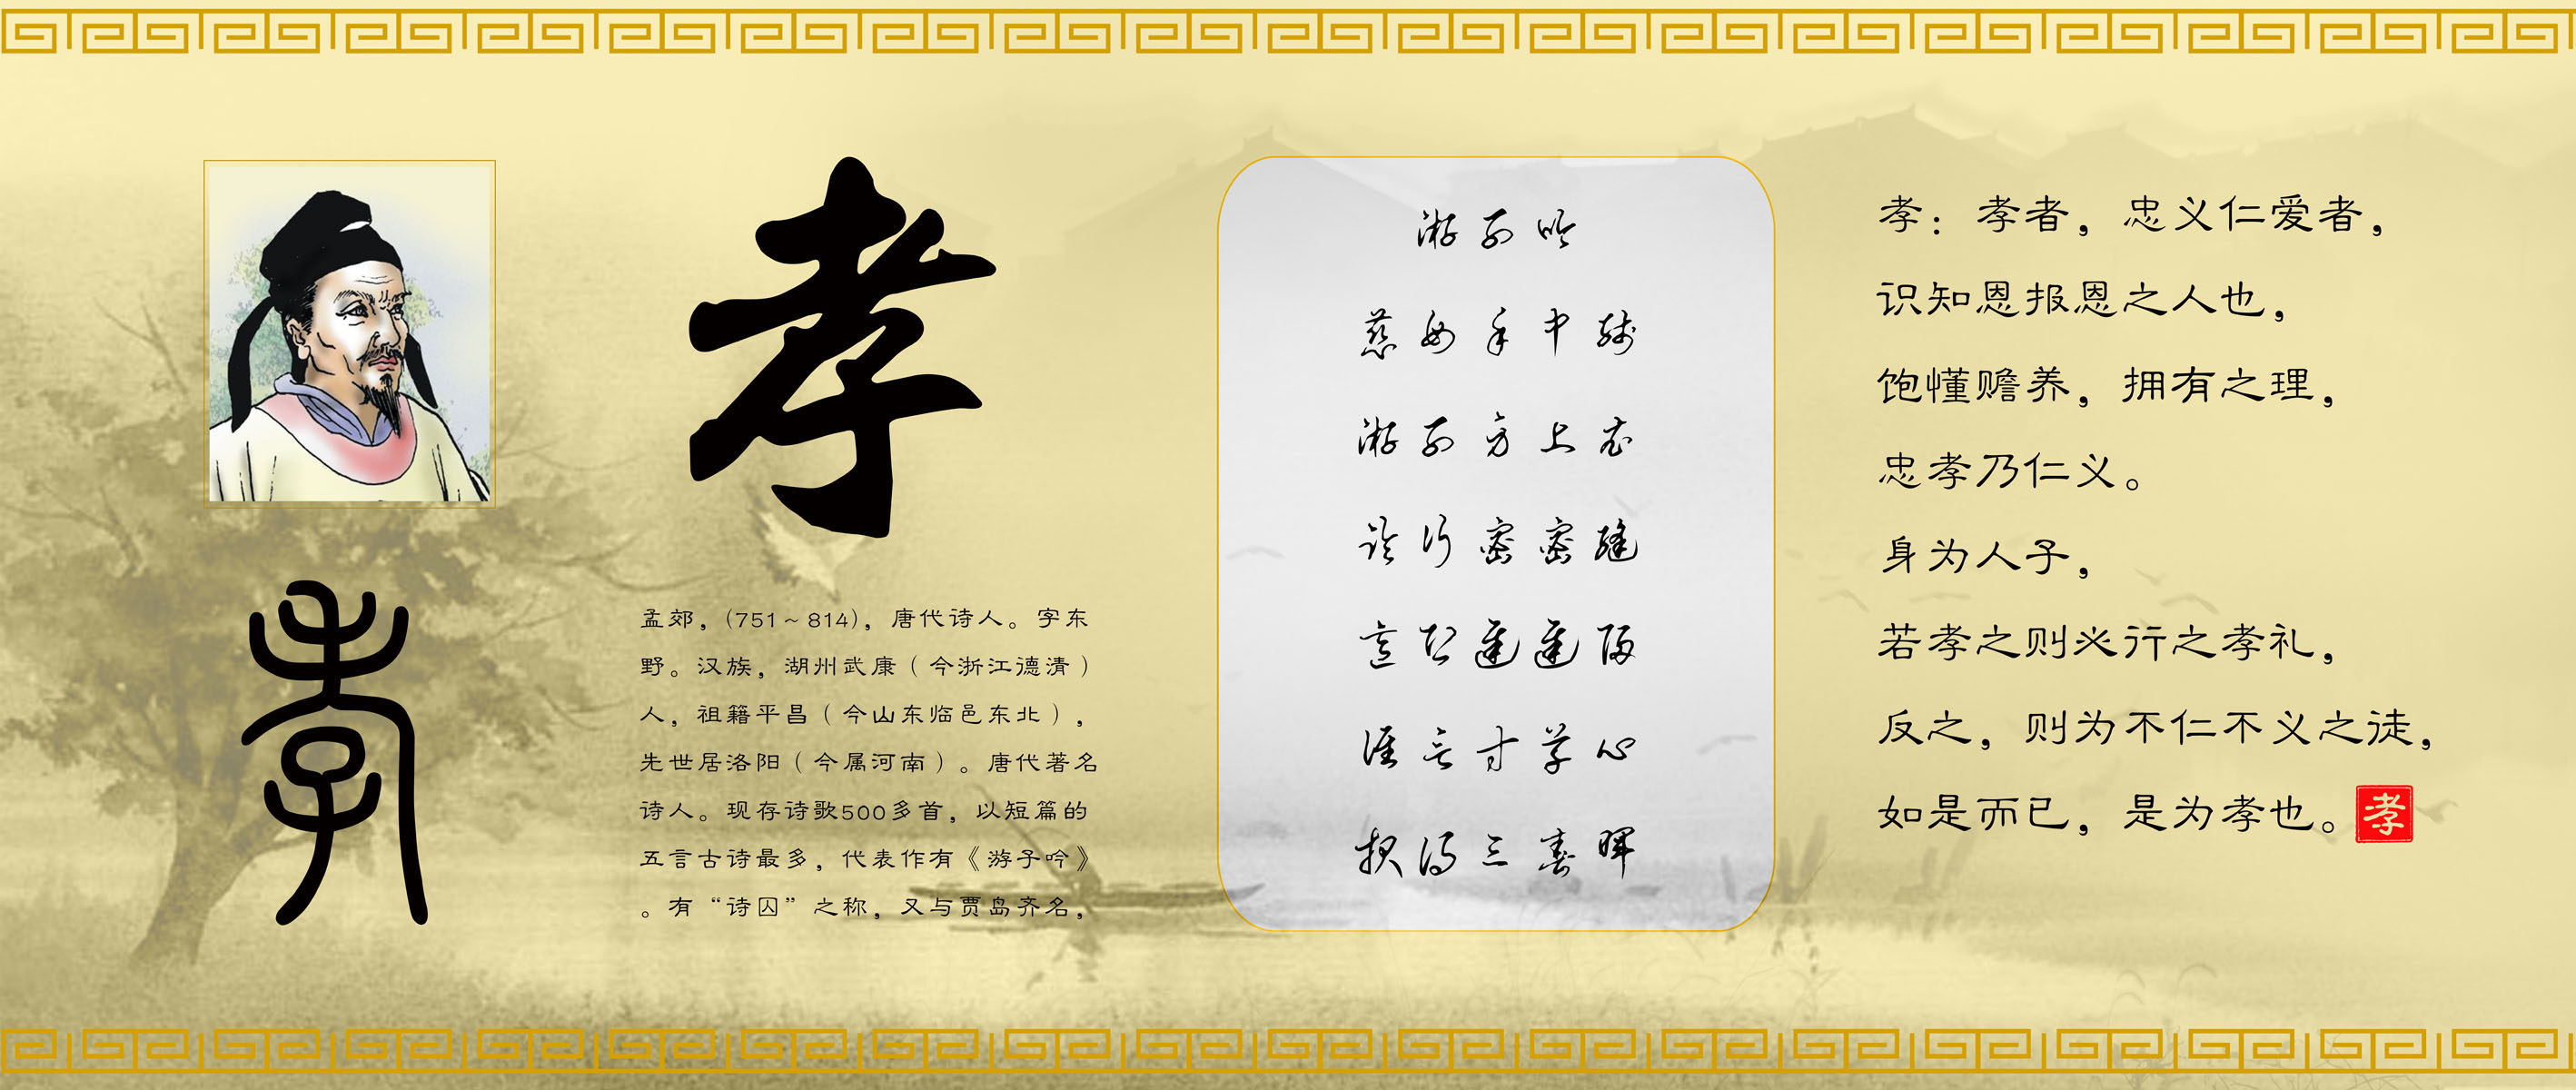 孝
孝
孟郊，(751～814)，唐代诗人。字东
野。汉族，湖州武康（今浙江德清）
人，祖籍平昌（今山东临邑东北），
先世居洛阳（今属河南）。唐代著名
诗人。现存诗歌500多首，以短篇的
五言古诗最多，代表作有《游子吟》
。有“诗囚”之称，又与贾岛齐名，
游子吟
慈母手中线
游子身上衣
临行密密缝
意恐迟迟归
谁言寸草心
报得三春晖
孝：孝者，忠义仁爱者，
识知恩报恩之人也，
饱懂赡养，拥有之理，
忠孝乃仁义。
身为人子，
若孝之则必行之孝礼，
反之，则为不仁不义之徒，
如是而已，是为孝也。孝